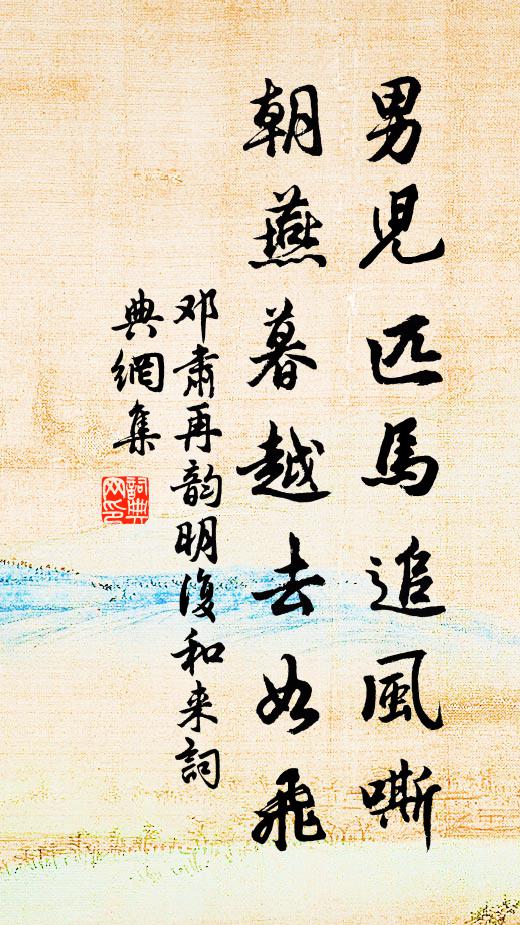 男児匹馬追風嘶
朝燕暮越去如飛
邓肅再韵明復和来詞
典網集
詞典
网印